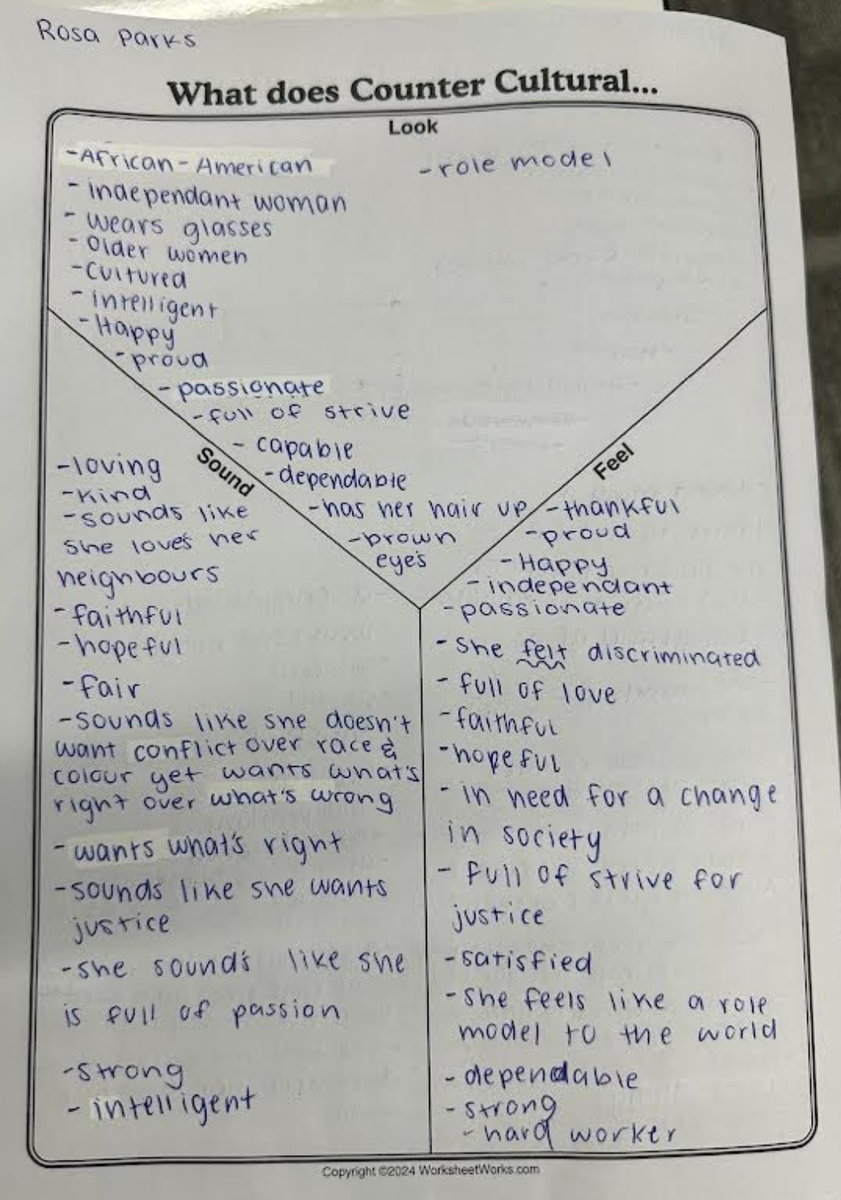 Rosa Parks
What does Counter Cultural...
Look
-African-American
-role model
- independant woman
- wears glasses
- Older women
-Cultured
- intelligent
-Happy
-proud
-passionate
-full of strive
- capable
-dependable
-has her hair up
-brown
eyes
Sound
-loving
-kind
-sounds like
she loves her
neighbours
-faithful
-hopeful
-fair
-sounds like she doesn't
want conflict over race &
colour yet wants what's
right over what's wrong
-wants what's right
-sounds like she wants
justice
-she sounds like she
is full of passion
-strong
- intelligent
Feel
-thankful
-proud
-Happy
- independant
-passionate
- She felt discriminated
- full of love
-faithful
-hopeful
- in need for a change
in society
- full of strive for
justice
-satisfied
-She feels like a role
model to the world
- dependable
- strong
- hard worker
Copyright ©2024 WorksheetWorks.com